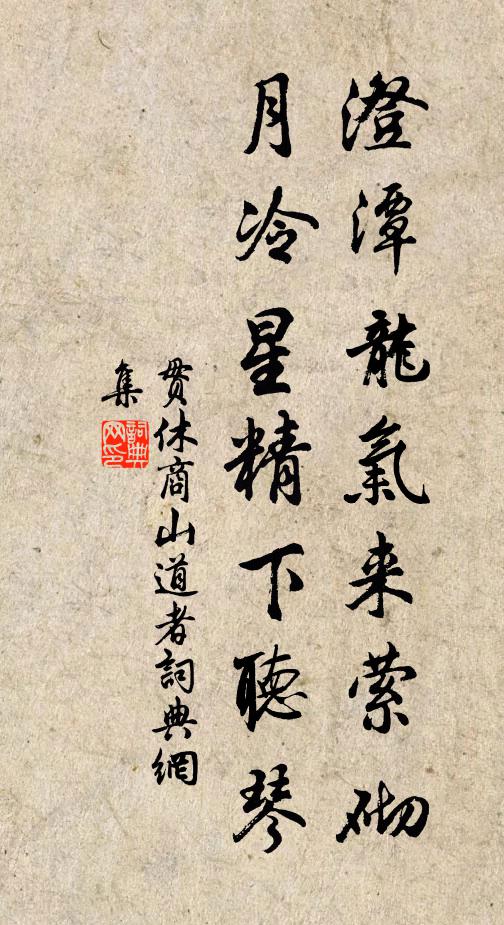 澄潭龍氣来縈砌
月冷星精下聽琴
貫休商山道者詞典網
集
詞典网印